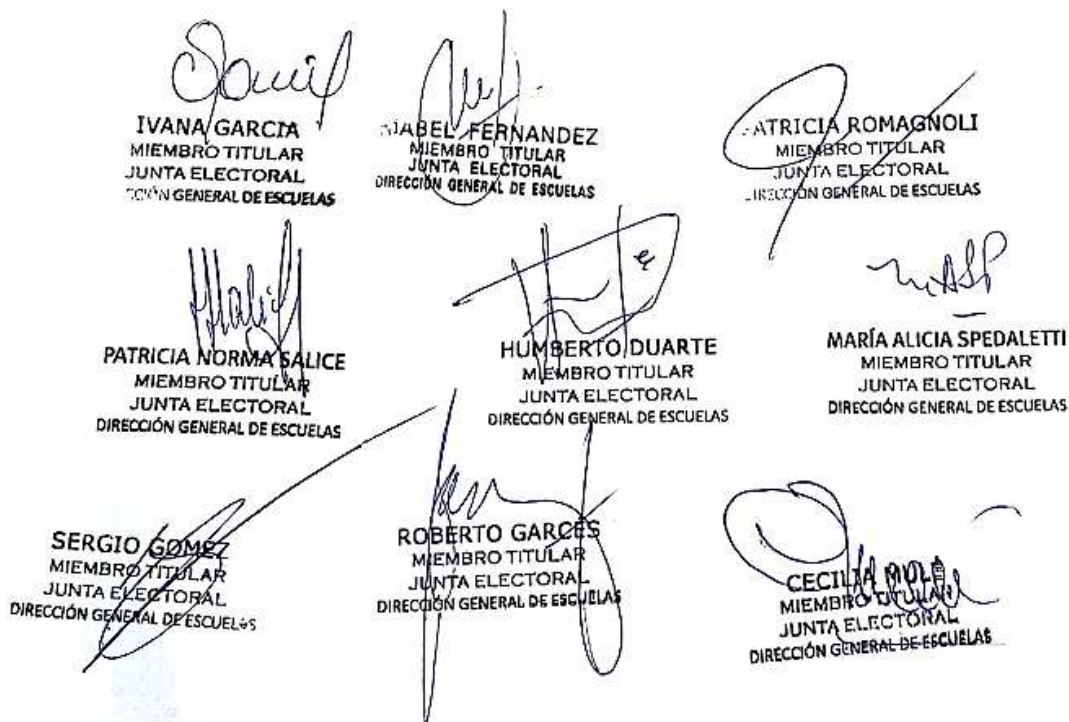 IVANA GARCIA
MIEMBRO TITULAR
JUNTA ELECTORAL
GENERAL DE ESCUELAS
FERNANDEZ
MIEMBRO TITULAR
JUNTA ELECTORAL
DIRECCIÓN GENERAL DE ESCUELAS
ATRICIA ROMAGNOLI
MIEMBRO TITULAR
JUNTA ELECTORAL
DIRECCIÓN GENERAL DE ESCUELAS
PATRICIA NORMA SALICE
MIEMBRO TITULAR
JUNTA ELECTORAL
DIRECCIÓN GENERAL DE ESCUELAS
HUMBERTO DUARTE
MIEMBRO TITULAR
JUNTA ELECTORAL
DIRECCIÓN GENERAL DE ESCUELAS
MARÍA ALICIA SPEDALETTI
MIEMBRO TITULAR
JUNTA ELECTORAL
DIRECCIÓN GENERAL DE ESCUELAS
SERGIO GOMEZ
MIEMBRO TITULAR
JUNTA ELECTORAL
DIRECCIÓN GENERAL DE ESCUELAS
ROBERTO GARCES
MIEMBRO TITULAR
JUNTA ELECTORAL
DIRECCIÓN GENERAL DE ESCUELAS
CECILIA
MIEMBRO TITULAR
JUNTA ELECTORAL
DIRECCIÓN GENERAL DE ESCUELAS